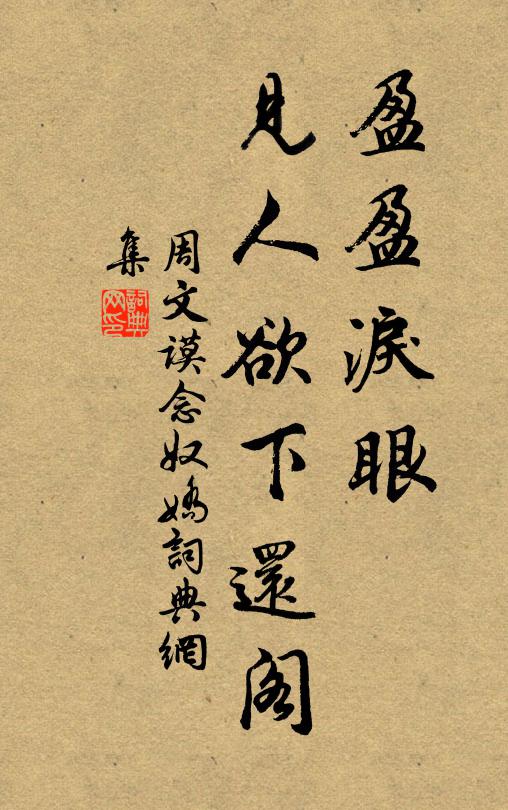 盈盈淚眼
見人欲下還阁
周文謨念奴嬌詞典網
集
詞典网印